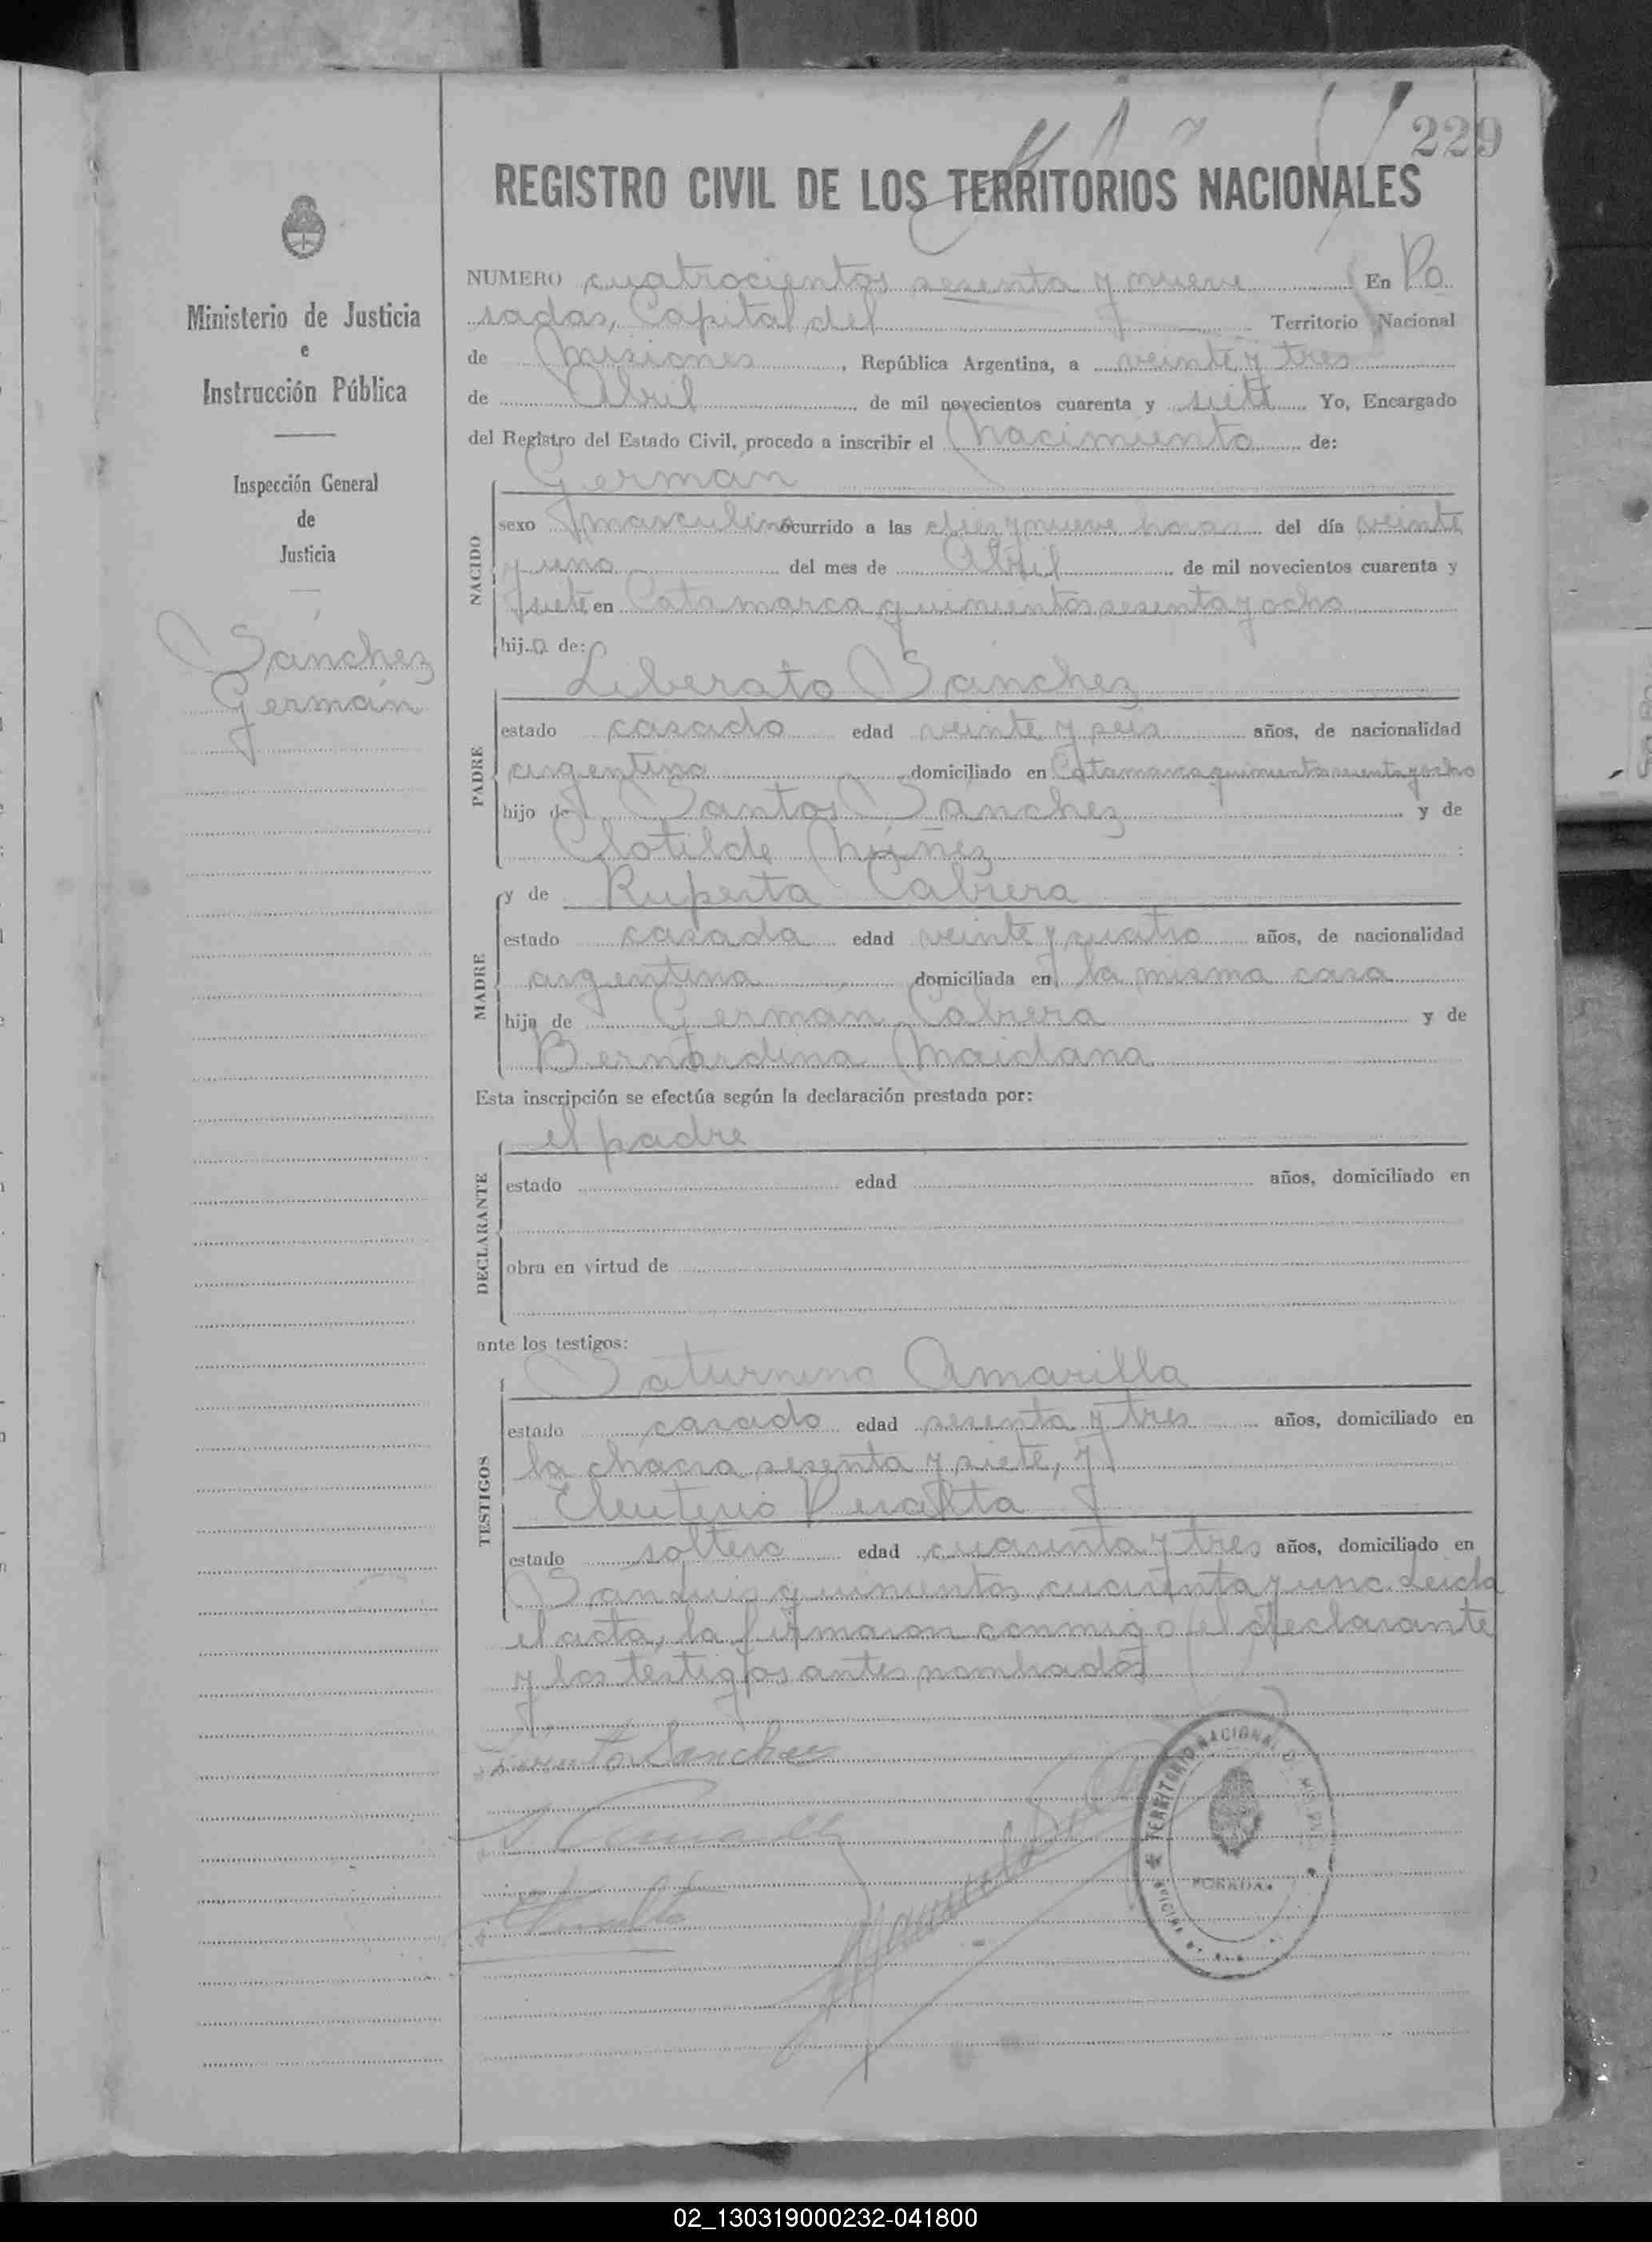 229
REGISTRO CIVIL DE LOS TERRITORIOS NACIONALES
Ministerio de Justicia
e
Instrucción Pública
Inspección General
de
Justicia
Sánchez
Germán
NUMERO cuatrocientos sesenta y nueve En Po
sadas, Capital del Territorio Nacional
de Misiones, República Argentina, a veinte y tres
de Abril de mil novecientos cuarenta y siete Yo, Encargado
del Registro del Estado Civil, procedo a inscribir el Nacimiento de:
Germán
NACIDO
sexo masculino ocurrido a las diez y nueve horas del día veinte
y uno del mes de Abril de mil novecientos cuarenta y
siete en Catamarca quinientos sesenta y ocho
hijo de:
Liberato Sánchez
PADRE
estado casado edad veinte y seis años, de nacionalidad
argentino domiciliado en Catamarca quinientos sesenta y ocho
hijo de Santos Sánchez y de
Clotilde Núñez
y de Ruperta Cabrera
MADRE
estado casada edad veinte y cuatro años, de nacionalidad
argentina domiciliada en la misma casa
hija de Germán Cabrera y de
Bernardina Maidana
Esta inscripción se efectúa según la declaración prestada por:
el padre
DECLARANTE
estado edad años, domiciliado en
obra en virtud de
ante los testigos:
Saturnino Amarilla
TESTIGOS
estado casado edad sesenta y tres años, domiciliado en
la chacra sesenta y siete, y
Eleuterio Peralta
estado soltero edad cuarenta y tres años, domiciliado en
San Luis quinientos cuarenta y uno. Leida
el acta, la firmaron conmigo el declarante
y los testigos antes nombrados
Sanchez
TERRITORIO NACIONAL DE MISIONES
POSADAS
OFICINA
02_130319000232-041800